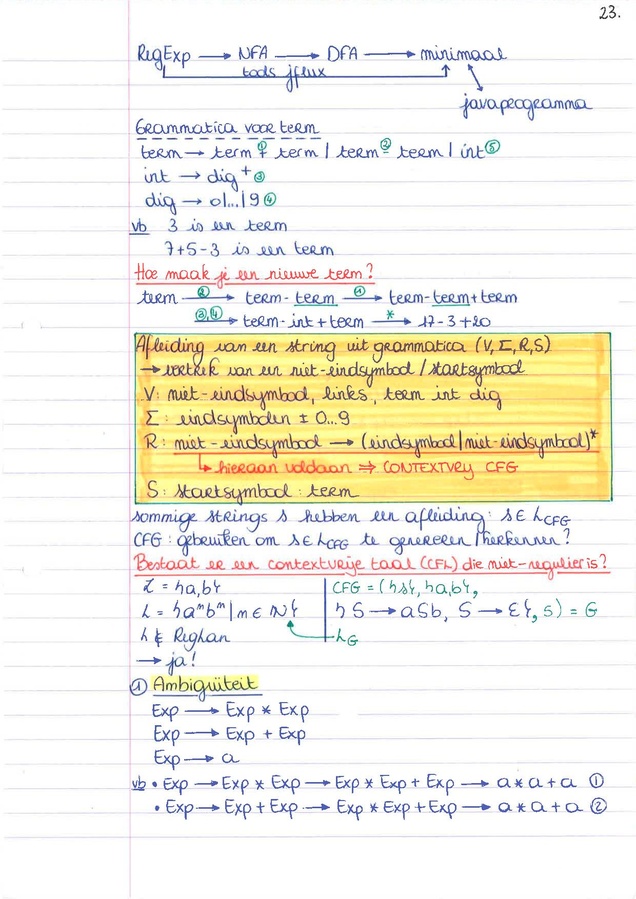 23.
RegExp → NFA → DFA → minimaal
tools jflux
javaprogramma
Grammatica voor term
term → term ① + term | term ② - term | int ⑤
int → dig + ③
dig → 0|...|9 ④
vb 3 is een term
7+5-3 is een term
Hoe maak je een nieuwe term?
term ②→ term - term ①→ term - term + term
③,④→ term - int + term *→ 17-3+20
Afleiding van een string uit grammatica (V, Σ, R, S)
→ vertrek van een niet-eindsymbol / startsymbol
V: niet-eindsymbol, links, term int dig
Σ: eindsymbolen ± 0...9
R: niet-eindsymbol → (eindsymbol | niet-eindsymbol)*
↳ hieraan voldaan ⇒ CONTEXTVRY CFG
S: startsymbol: term
sommige strings s hebben een afleiding: s ∈ L_CFG
CFG: gebruiken om s ∈ L_CFG te genereren / herkennen?
Bestaat er een contextvrije taal (CFL) die niet-regulier is?
Σ = {a,b}
L = {aⁿbⁿ | n ∈ ℕ}
L ∉ RegLan
→ ja!
CFG = ({S}, {a,b},
{S → aSb, S → ε}, S) = G
L_G
① Ambiguïteit
Exp → Exp * Exp
Exp → Exp + Exp
Exp → a
vb • Exp → Exp * Exp → Exp * Exp + Exp → a * a + a ①
• Exp → Exp + Exp → Exp * Exp + Exp → a * a + a ②